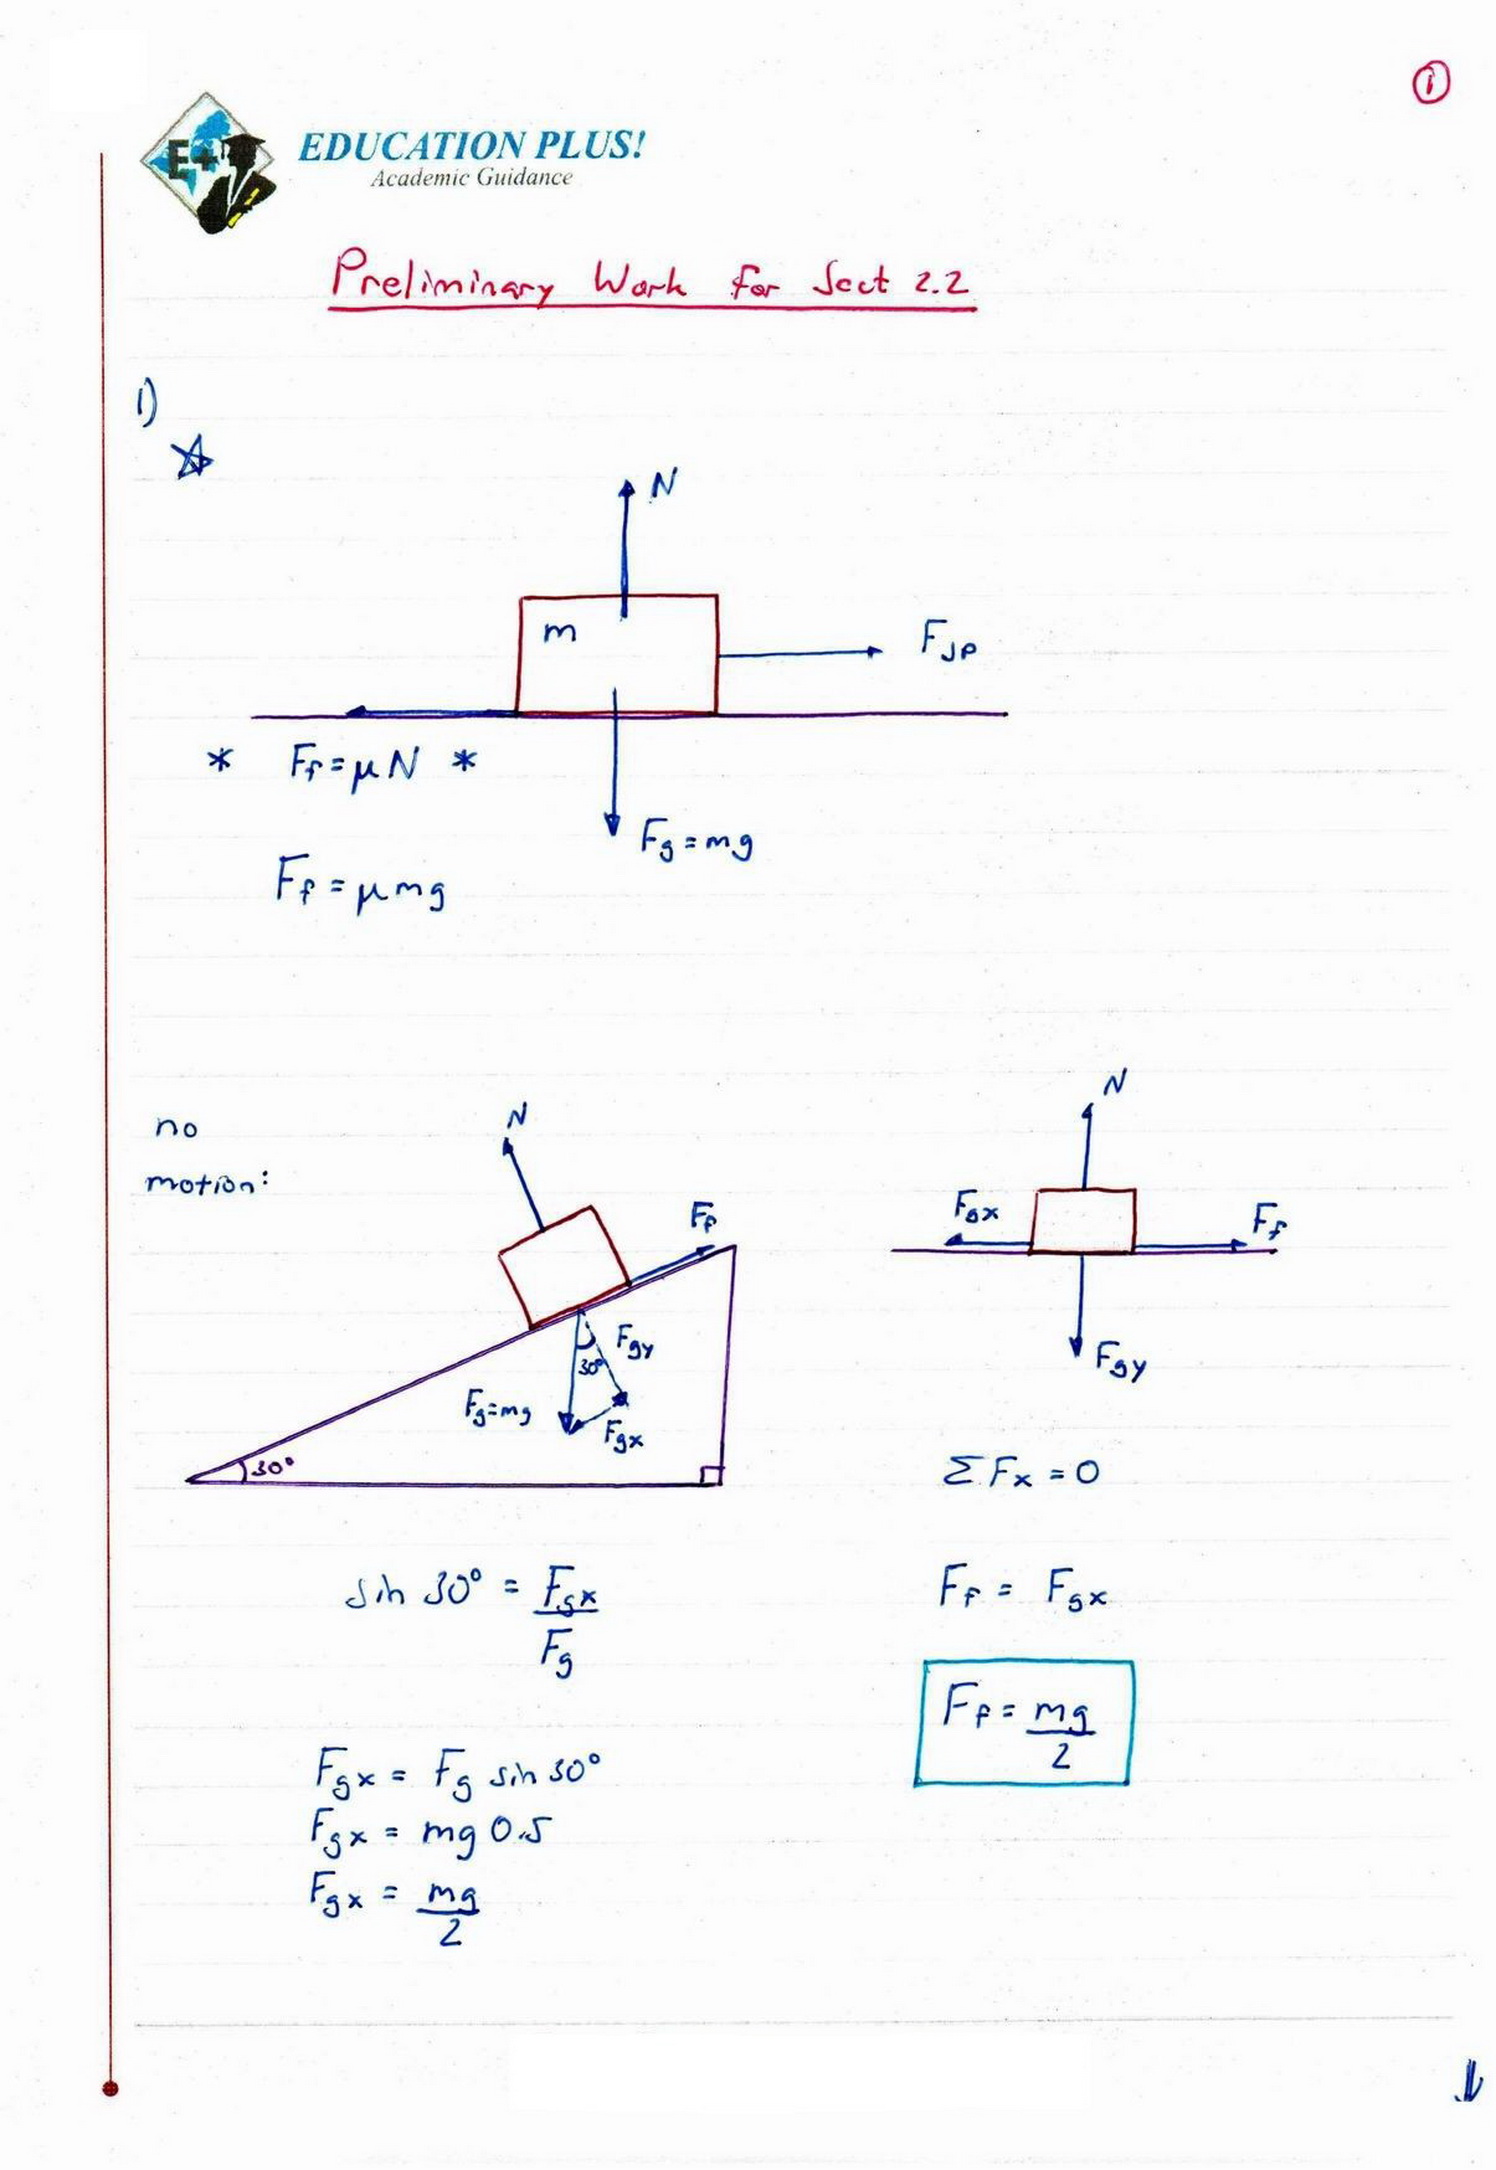 ①
E+
EDUCATION PLUS!
Academic Guidance
Preliminary Work for Sect 2.2
1)
N
m
F_JP
* F_f = μN *
F_g = mg
F_f = μmg
no
motion:
N
F_f
F_gy
30°
F_g = mg
F_gx
30°
N
F_gx
F_f
F_gy
ΣF_x = 0
sin 30° = F_gx / F_g
F_f = F_gx
F_f = mg / 2
F_gx = F_g sin 30°
F_gx = mg 0.5
F_gx = mg / 2